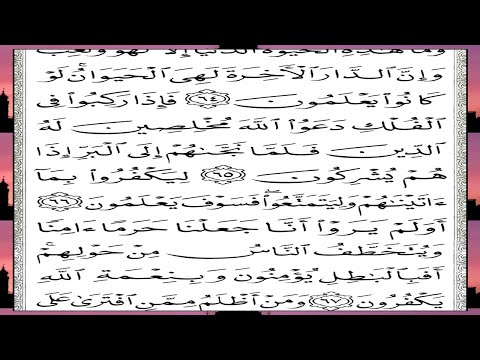 وَمَا هَٰذِهِ ٱلْحَيَوٰةُ ٱلدُّنْيَآ إِلَّا لَهْوٌ وَلَعِبٌ
وَإِنَّ ٱلدَّارَ ٱلْأَخِرَةَ لَهِىَ ٱلْحَيَوَانُ لَوْ
كَانُوا۟ يَعْلَمُونَ ٦٤ فَإِذَا رَكِبُوا۟ فِى
ٱلْفُلْكِ دَعَوُا۟ ٱللَّهَ مُخْلِصِينَ لَهُ
ٱلدِّينَ فَلَمَّا نَجَّىٰهُمْ إِلَى ٱلْبَرِّ إِذَا
هُمْ يُشْرِكُونَ ٦٥ لِيَكْفُرُوا۟ بِمَا
ءَاتَيْنَٰهُمْ وَلِيَتَمَتَّعُوا۟ فَسَوْفَ يَعْلَمُونَ ٦٦
أَوَلَمْ يَرَوْا۟ أَنَّا جَعَلْنَا حَرَمًا ءَامِنًا
وَيُتَخَطَّفُ ٱلنَّاسُ مِنْ حَوْلِهِمْ
أَفَبِٱلْبَٰطِلِ يُؤْمِنُونَ وَبِنِعْمَةِ ٱللَّهِ
يَكْفُرُونَ ٦٧ وَمَنْ أَظْلَمُ مِمَّنِ ٱفْتَرَىٰ عَلَى